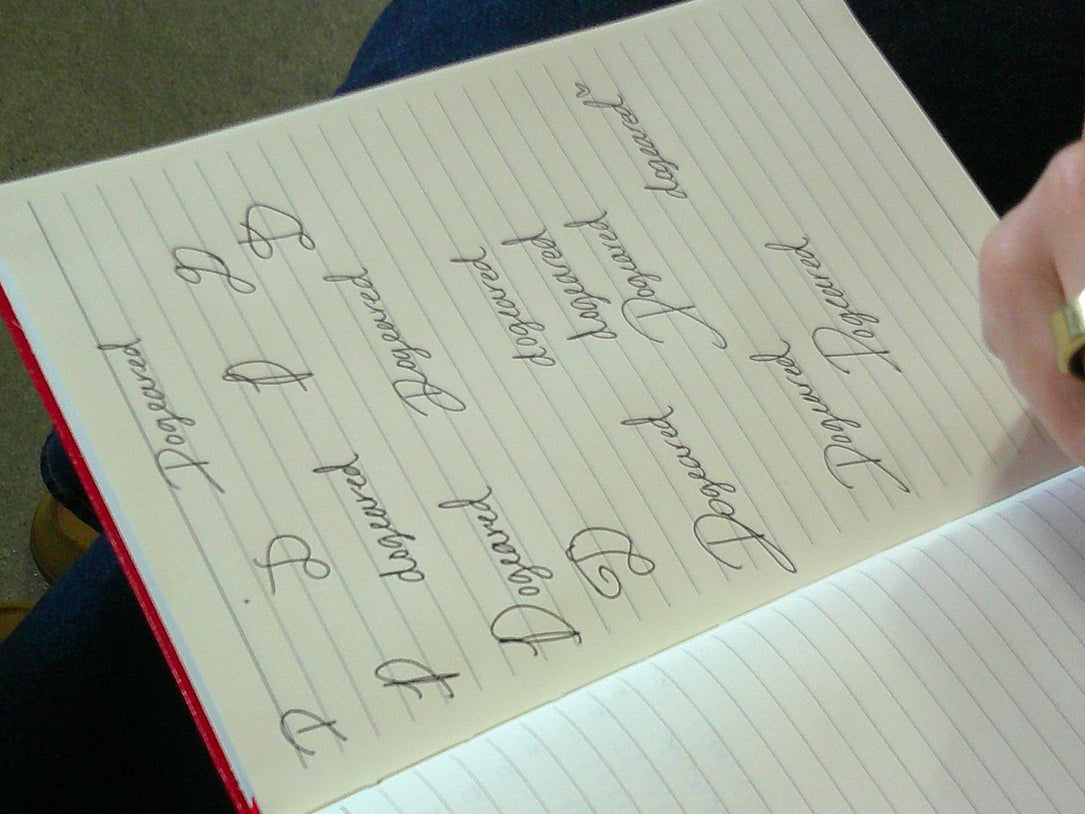 D Dogeared
D D D
D dogeared D
Dogeared Dogeared
D dogeared
dogeared
Dogeared Dogeared dogeared
Dogeared Dogeared